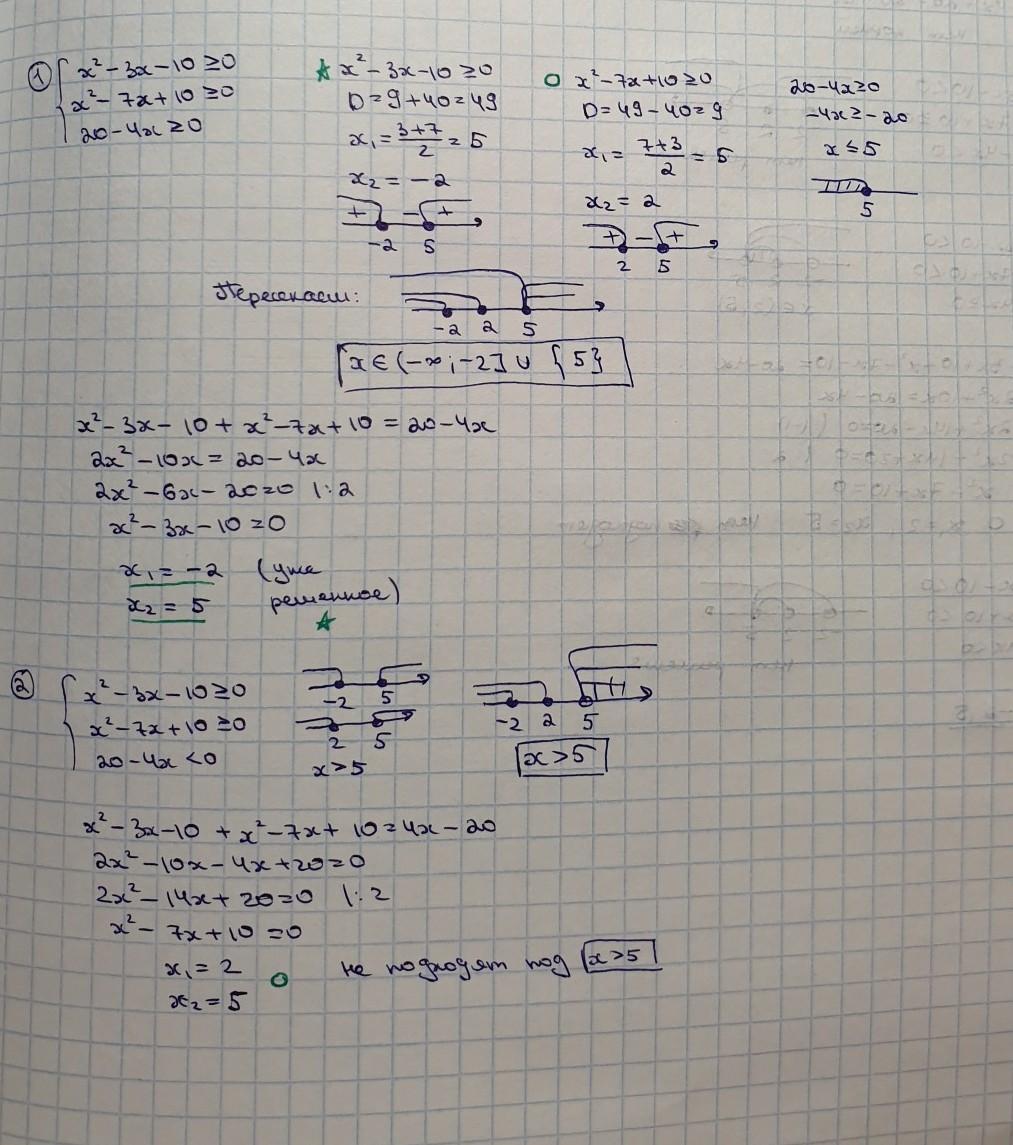 ① x² - 3x - 10 ≥ 0
x² - 7x + 10 ≥ 0
20 - 4x ≥ 0
☆ x² - 3x - 10 ≥ 0
D = 9 + 40 = 49
x₁ = (3+7)/2 = 5
x₂ = -2
+ - +
-2 5
○ x² - 7x + 10 ≥ 0
D = 49 - 40 = 9
x₁ = (7+3)/2 = 5
x₂ = 2
+ - +
2 5
20 - 4x ≥ 0
-4x ≥ -20
x ≤ 5
5
Пересекаем:
-2 2 5
x ∈ (-∞; -2] ∪ {5}
x² - 3x - 10 + x² - 7x + 10 = 20 - 4x
2x² - 10x = 20 - 4x
2x² - 6x - 20 = 0 |:2
x² - 3x - 10 = 0
x₁ = -2 (уже
x₂ = 5 решенное)
☆
② x² - 3x - 10 ≥ 0
x² - 7x + 10 ≥ 0
20 - 4x < 0
-2 5
2 5
x > 5
-2 2 5
x > 5
x² - 3x - 10 + x² - 7x + 10 = 4x - 20
2x² - 10x - 4x + 20 = 0
2x² - 14x + 20 = 0 |:2
x² - 7x + 10 = 0
x₁ = 2
x₂ = 5
○ не подходят под x > 5